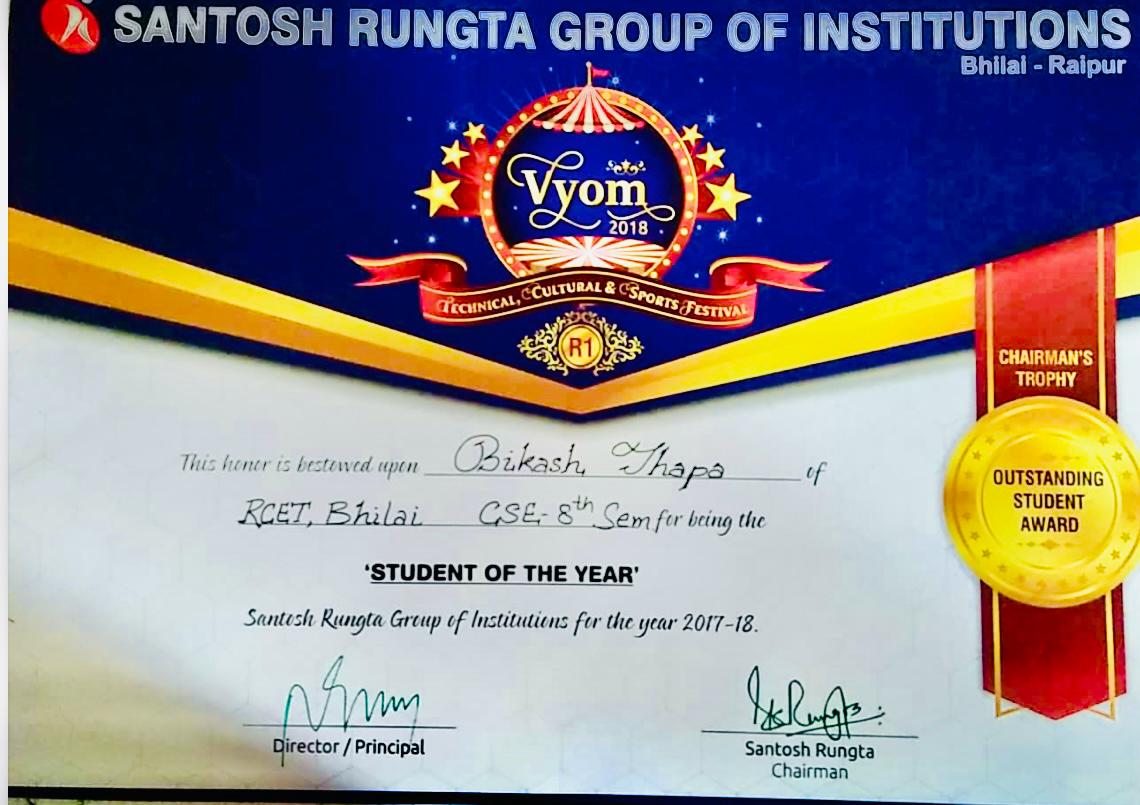 SANTOSH RUNGTA GROUP OF INSTITUTIONS
Bhilai - Raipur
Vyom
2018
TECHNICAL, CULTURAL & SPORTS FESTIVAL
R1
CHAIRMAN'S
TROPHY
OUTSTANDING
STUDENT
AWARD
This honor is bestowed upon Bikash Thapa of
RCET, Bhilai CSE- 8th Sem for being the
'STUDENT OF THE YEAR'
Santosh Rungta Group of Institutions for the year 2017-18.
Director / Principal
SKRungta
Santosh Rungta
Chairman